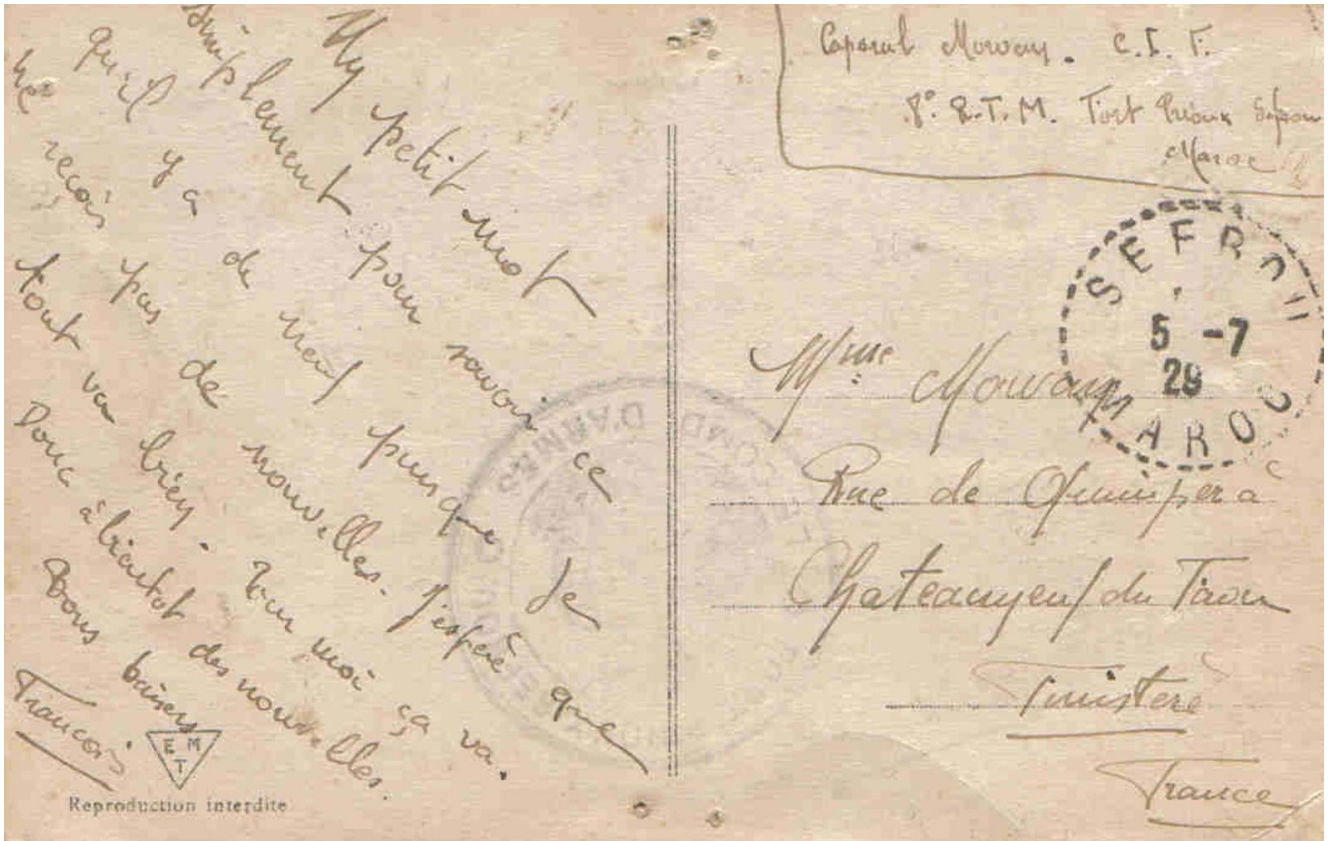 Un petit mot
simplement pour savoir ce
qu'il y a de neuf puisque je
ne reçois pas de nouvelles. J'espère que
tout va bien. Pour moi ça va.
Donc à bientot des nouvelles.
Bons baisers
François
EMT
Reproduction interdite
Caporal Morvan. C.I.F.
8e R.T.M. Fort Prioux Sefrou
Maroc
SEFROU
5 -7
29
MAROC
Mme Morvan
Rue de Quimper à
Chateauneuf du Faou
Finistère
France
COMD D'ARMES
SEFROU